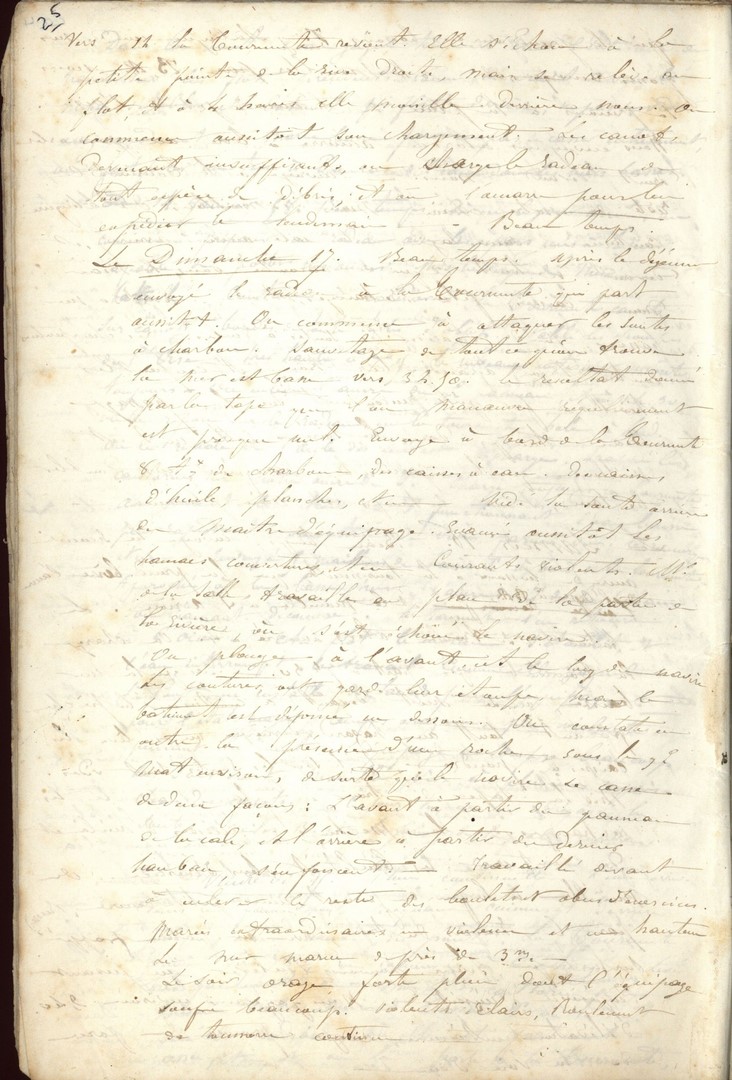 25
Vers 12 h la Tourmente revient. Elle échoue à la
petite pointe de la rive droite, mais se relève au
flot, et à 4 heures elle mouille derrière nous. On
commence aussitôt son chargement. Les canots
devenant insuffisants, on charge le radeau de
tout espèce de débris, et on l'amarre pour
expédier le lendemain - Beau temps.
Le Dimanche 17. Beau temps. Après le déjeuner
envoyé le radeau à la Tourmente qui part
aussitôt. On commence à attaquer les soutes
à charbon. Sauvetage de tout ce qu'on trouve
la mer est basse vers 3h.50. Le résultat donné
par la que l'on manœuvre
est presque nul. Envoyé à bord de la Tourmente
8 de charbon, des caisses à eau. Des caisses
d'huile, planches, - Vidé la soute arrière
du maître d'équipage. Evacué aussitôt les
hamacs couvertures, Courants violents. Mr
de la Salle travaille au plan de la partie de
la rivière où s'est échoué le navire.
On plonge à l'avant et le long du navire
Les coutures ont gardé leur étoupe mais le
bâtiment est défoncé en dessous. On constate en
outre la présence d'une roche sous le gd
mat environ, de sorte que le navire se casse
de deux façons: L'avant à partir du panneau
de la cale, et l'arrière à partir du dernier
hauban, s'enfoncent - Travaillé devant
à enlever le reste des boulets et obus d'exercice.
Marées extraordinaires en violence et en hauteur
La mer marne de près de 3m. -
Le soir orage, forte pluie dont l'équipage
souffre beaucoup. violents éclairs, Roulement
de tonnerre continu